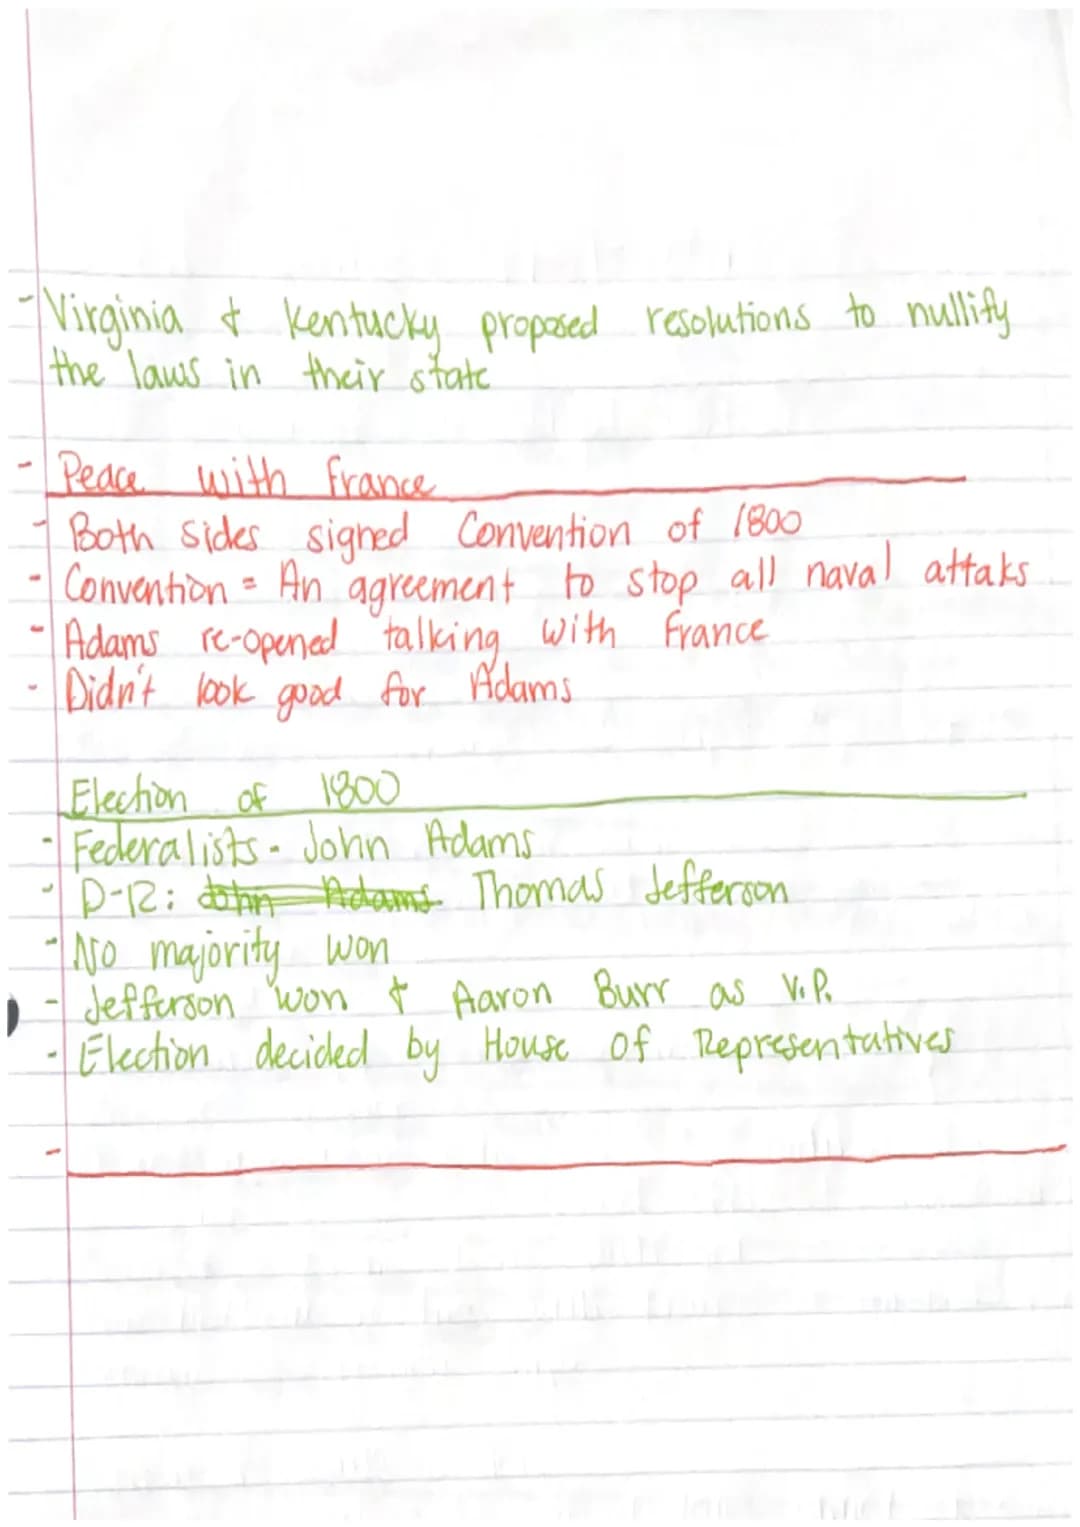 - Virginia & Kentucky proposed resolutions to nullify
the laws in their state
- Peace with France
- Both sides signed Convention of 1800
- Convention = An agreement to stop all naval attaks
- Adams re-opened talking with France
- Didn't look good for Adams
Election of 1800
- Federalists - John Adams
- D-R: John Adams Thomas Jefferson
- No majority won
- Jefferson won & Aaron Burr as V.P.
- Election decided by House of Representatives
-